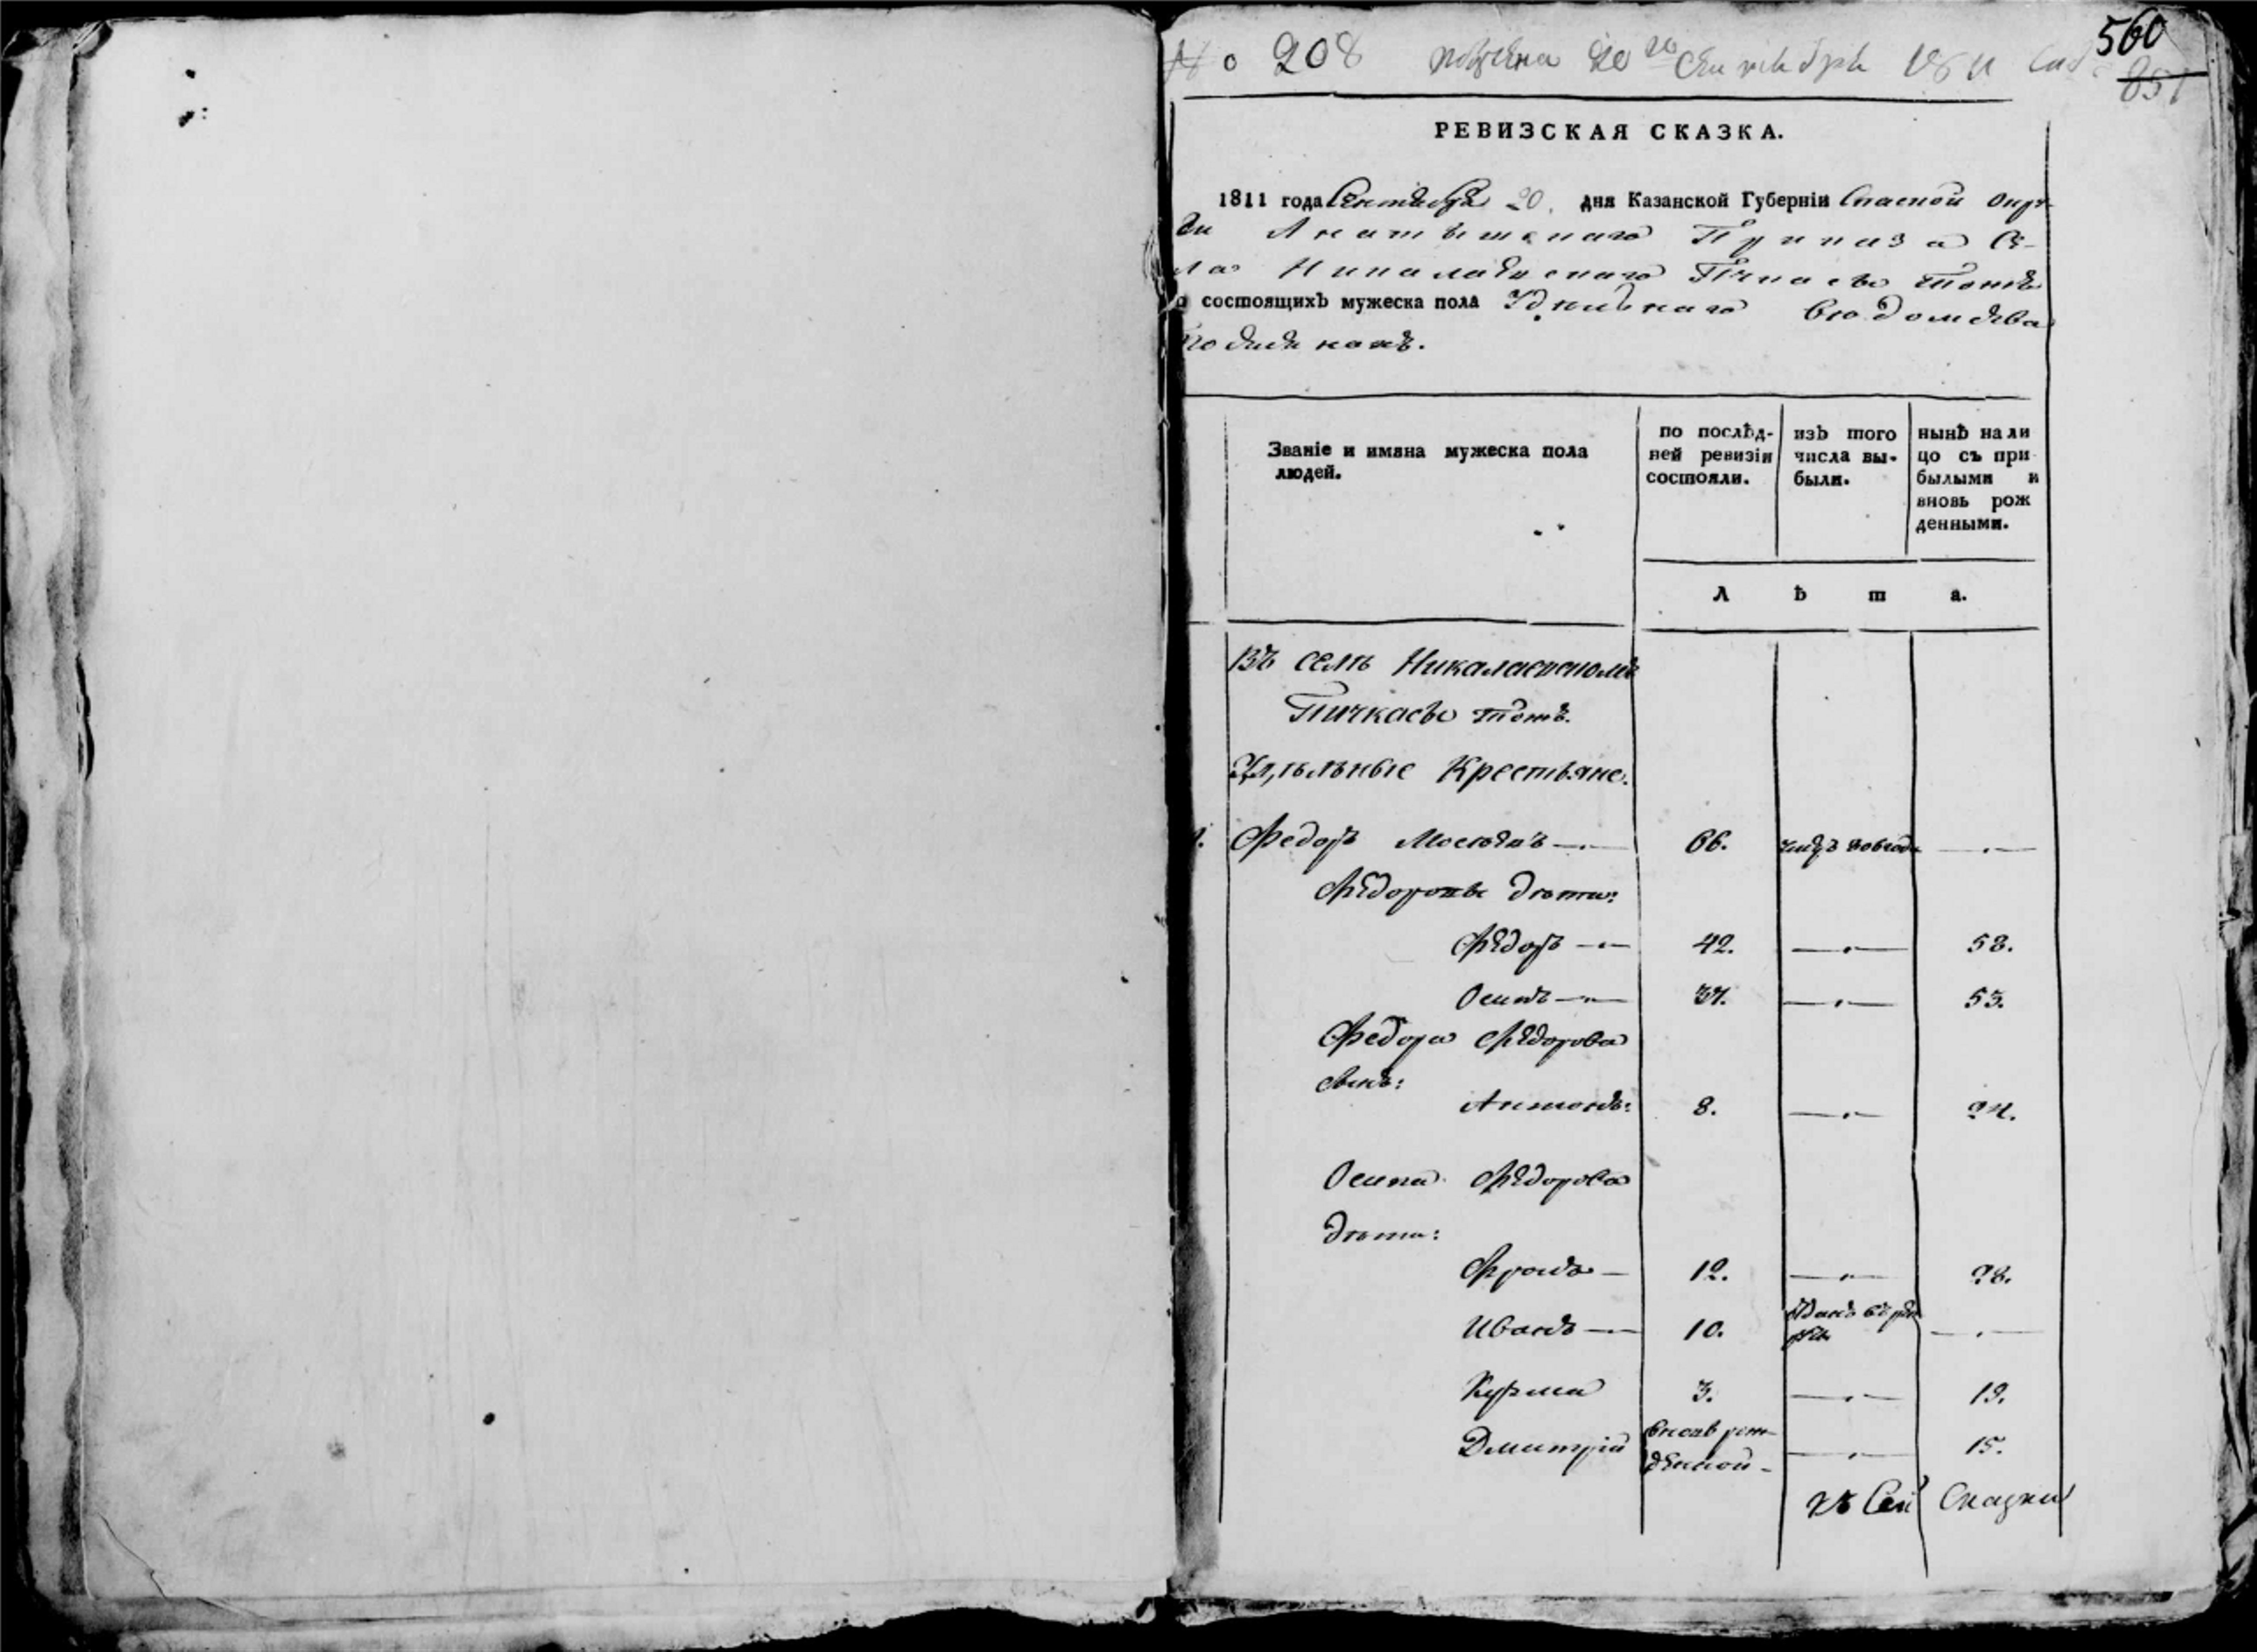 560
№ 208 подана 20го Сентября 1811 года
851
РЕВИЗСКАЯ СКАЗКА.
1811 года Сентября 20. дня Казанской Губерніи Спаской окру-
ги Ахатышскаго Приказа Се-
ла Никалаевскаго Пичкасы тожъ
о состоящихъ мужеска пола Удѣльнаго вѣдомства
Званіе и имяна мужеска пола
людей.
по послѣд-
ней ревизіи
состояли.
изъ того
числа вы-
были.
нынѣ нали
цо съ при
былыми и
вновь рож
денными.
Л ѣ т а.
Въ селѣ Никалаевскомъ
Пичкасы тожъ.
Удѣльные Крестьяне.
1. Федоръ 66.
Федоровы дѣти:
Федоръ — 42. — 58.
Осипъ — 37. — 53.
Федора Федорова
сынъ:
Антонъ: 8. — 24.
Осипа Федорова
дѣти:
Фролъ — 12. — 28.
Иванъ — 10. Отданъ въ рек
руты —
Кузма 3. — 19.
Дмитрій вновь рож-
денной — — 15.
Къ Сей Сказки